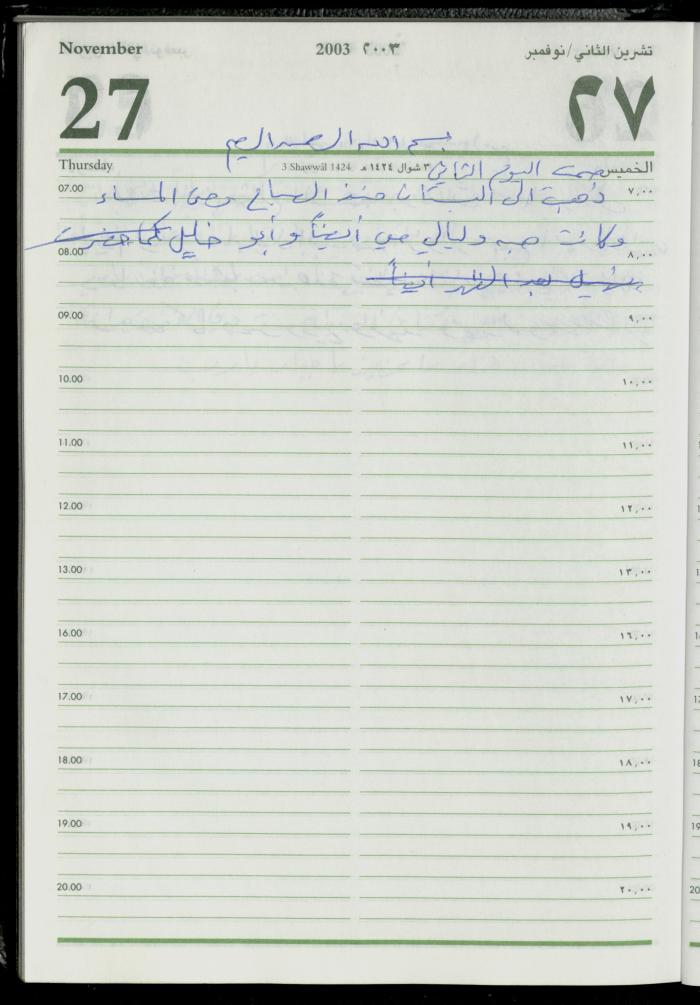 November 2003 ٢٠٠٣ تشرين الثاني/نوفمبر
27 ٢٧
بسم الله الرحمن الرحيم
Thursday 3 Shawwāl 1424 ٣ شوال ١٤٢٤ هـ الخميس
اليوم الثاني
07.00 ٧,٠٠
ذهبت الى البستان منذ الصباح وحتى المساء
وكانت هبه وليالي معي أيضاً وأبو خليل كما حضرت
08.00 ٨,٠٠
سهيل بعد الظهر أيضاً
09.00 ٩,٠٠
10.00 ١٠,٠٠
11.00 ١١,٠٠
12.00 ١٢,٠٠
13.00 ١٣,٠٠
16.00 ١٦,٠٠
17.00 ١٧,٠٠
18.00 ١٨,٠٠
19.00 ١٩,٠٠
20.00 ٢٠,٠٠